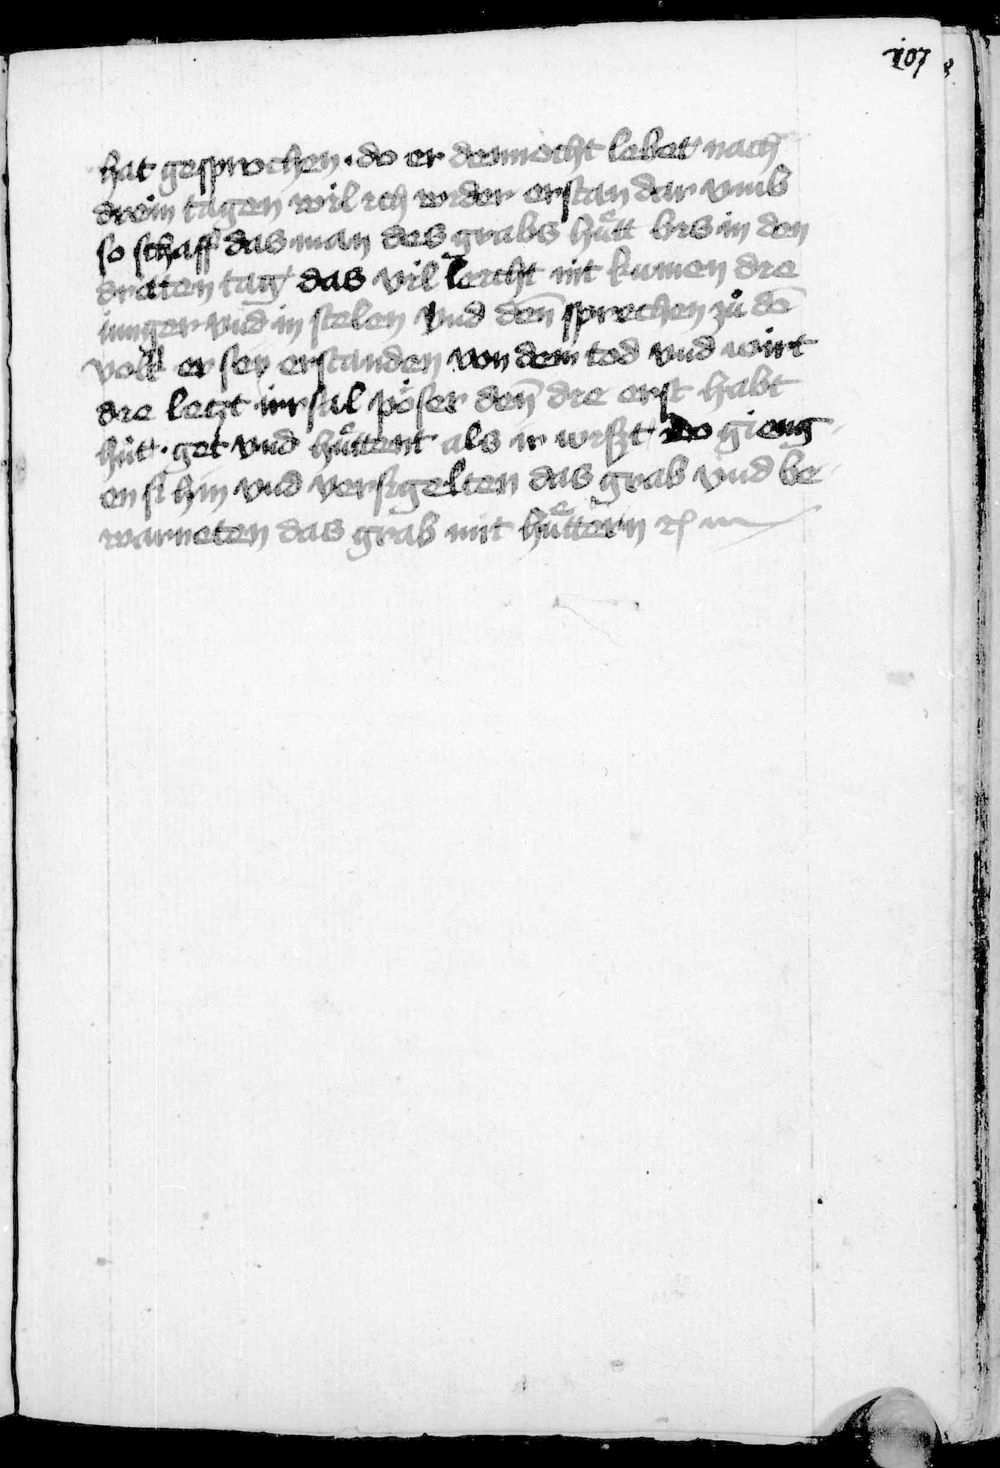 107
hat gesprochen · do er dennocht lebet nach
drein tagen wil ich wider erstan dar vmb
so schaff das man des grabs huͤtt bis in den
dritten tag das vil leicht nit kumen die
iunger vnd in stelen vnd den̄ sprechen zů dē
volk er sey erstanden von dem tod vnd wirt
die letzt irrsal poͤser den̄ die erst habt
hůt · get vnd huͤttent als ir wißt do gieng
en si hin vnd versigelten das grab vnd be
warneten das grab mit huͤttern